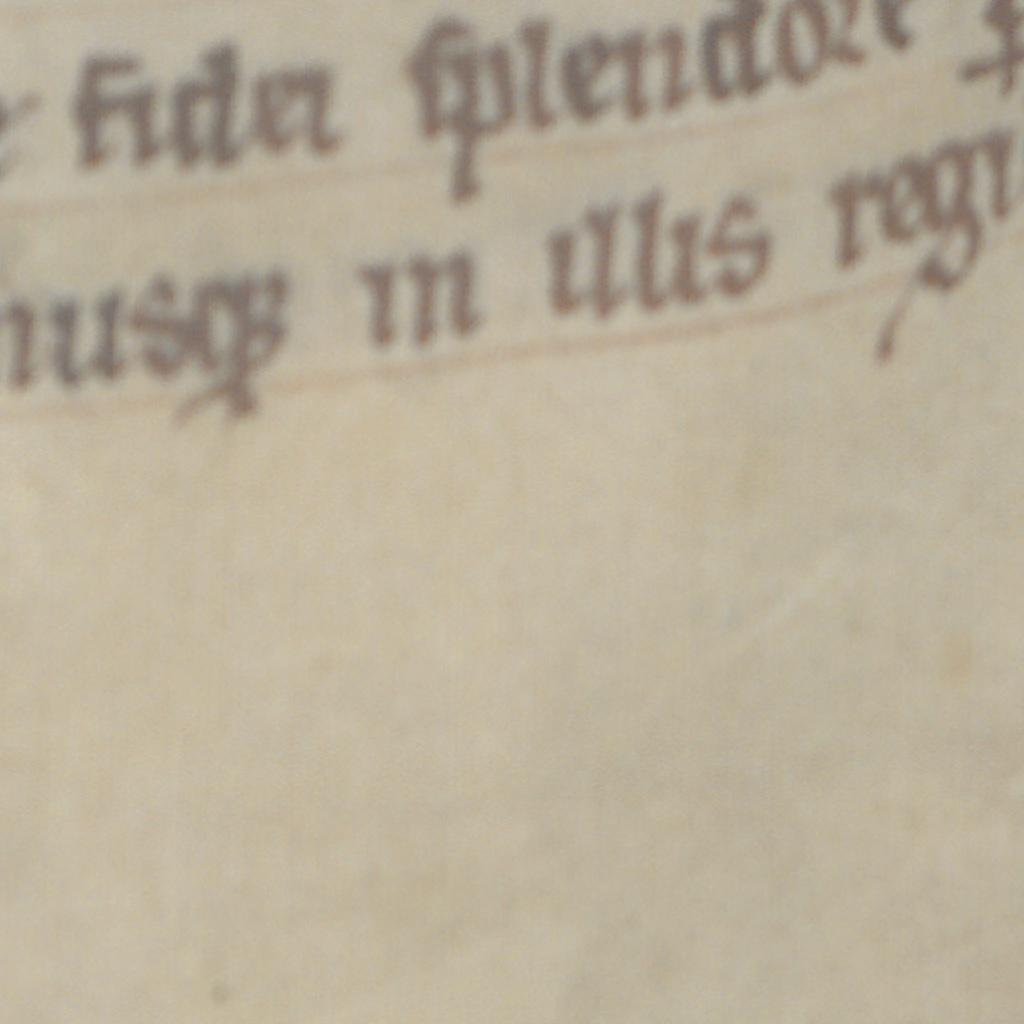 fidei splendore
in illis regi